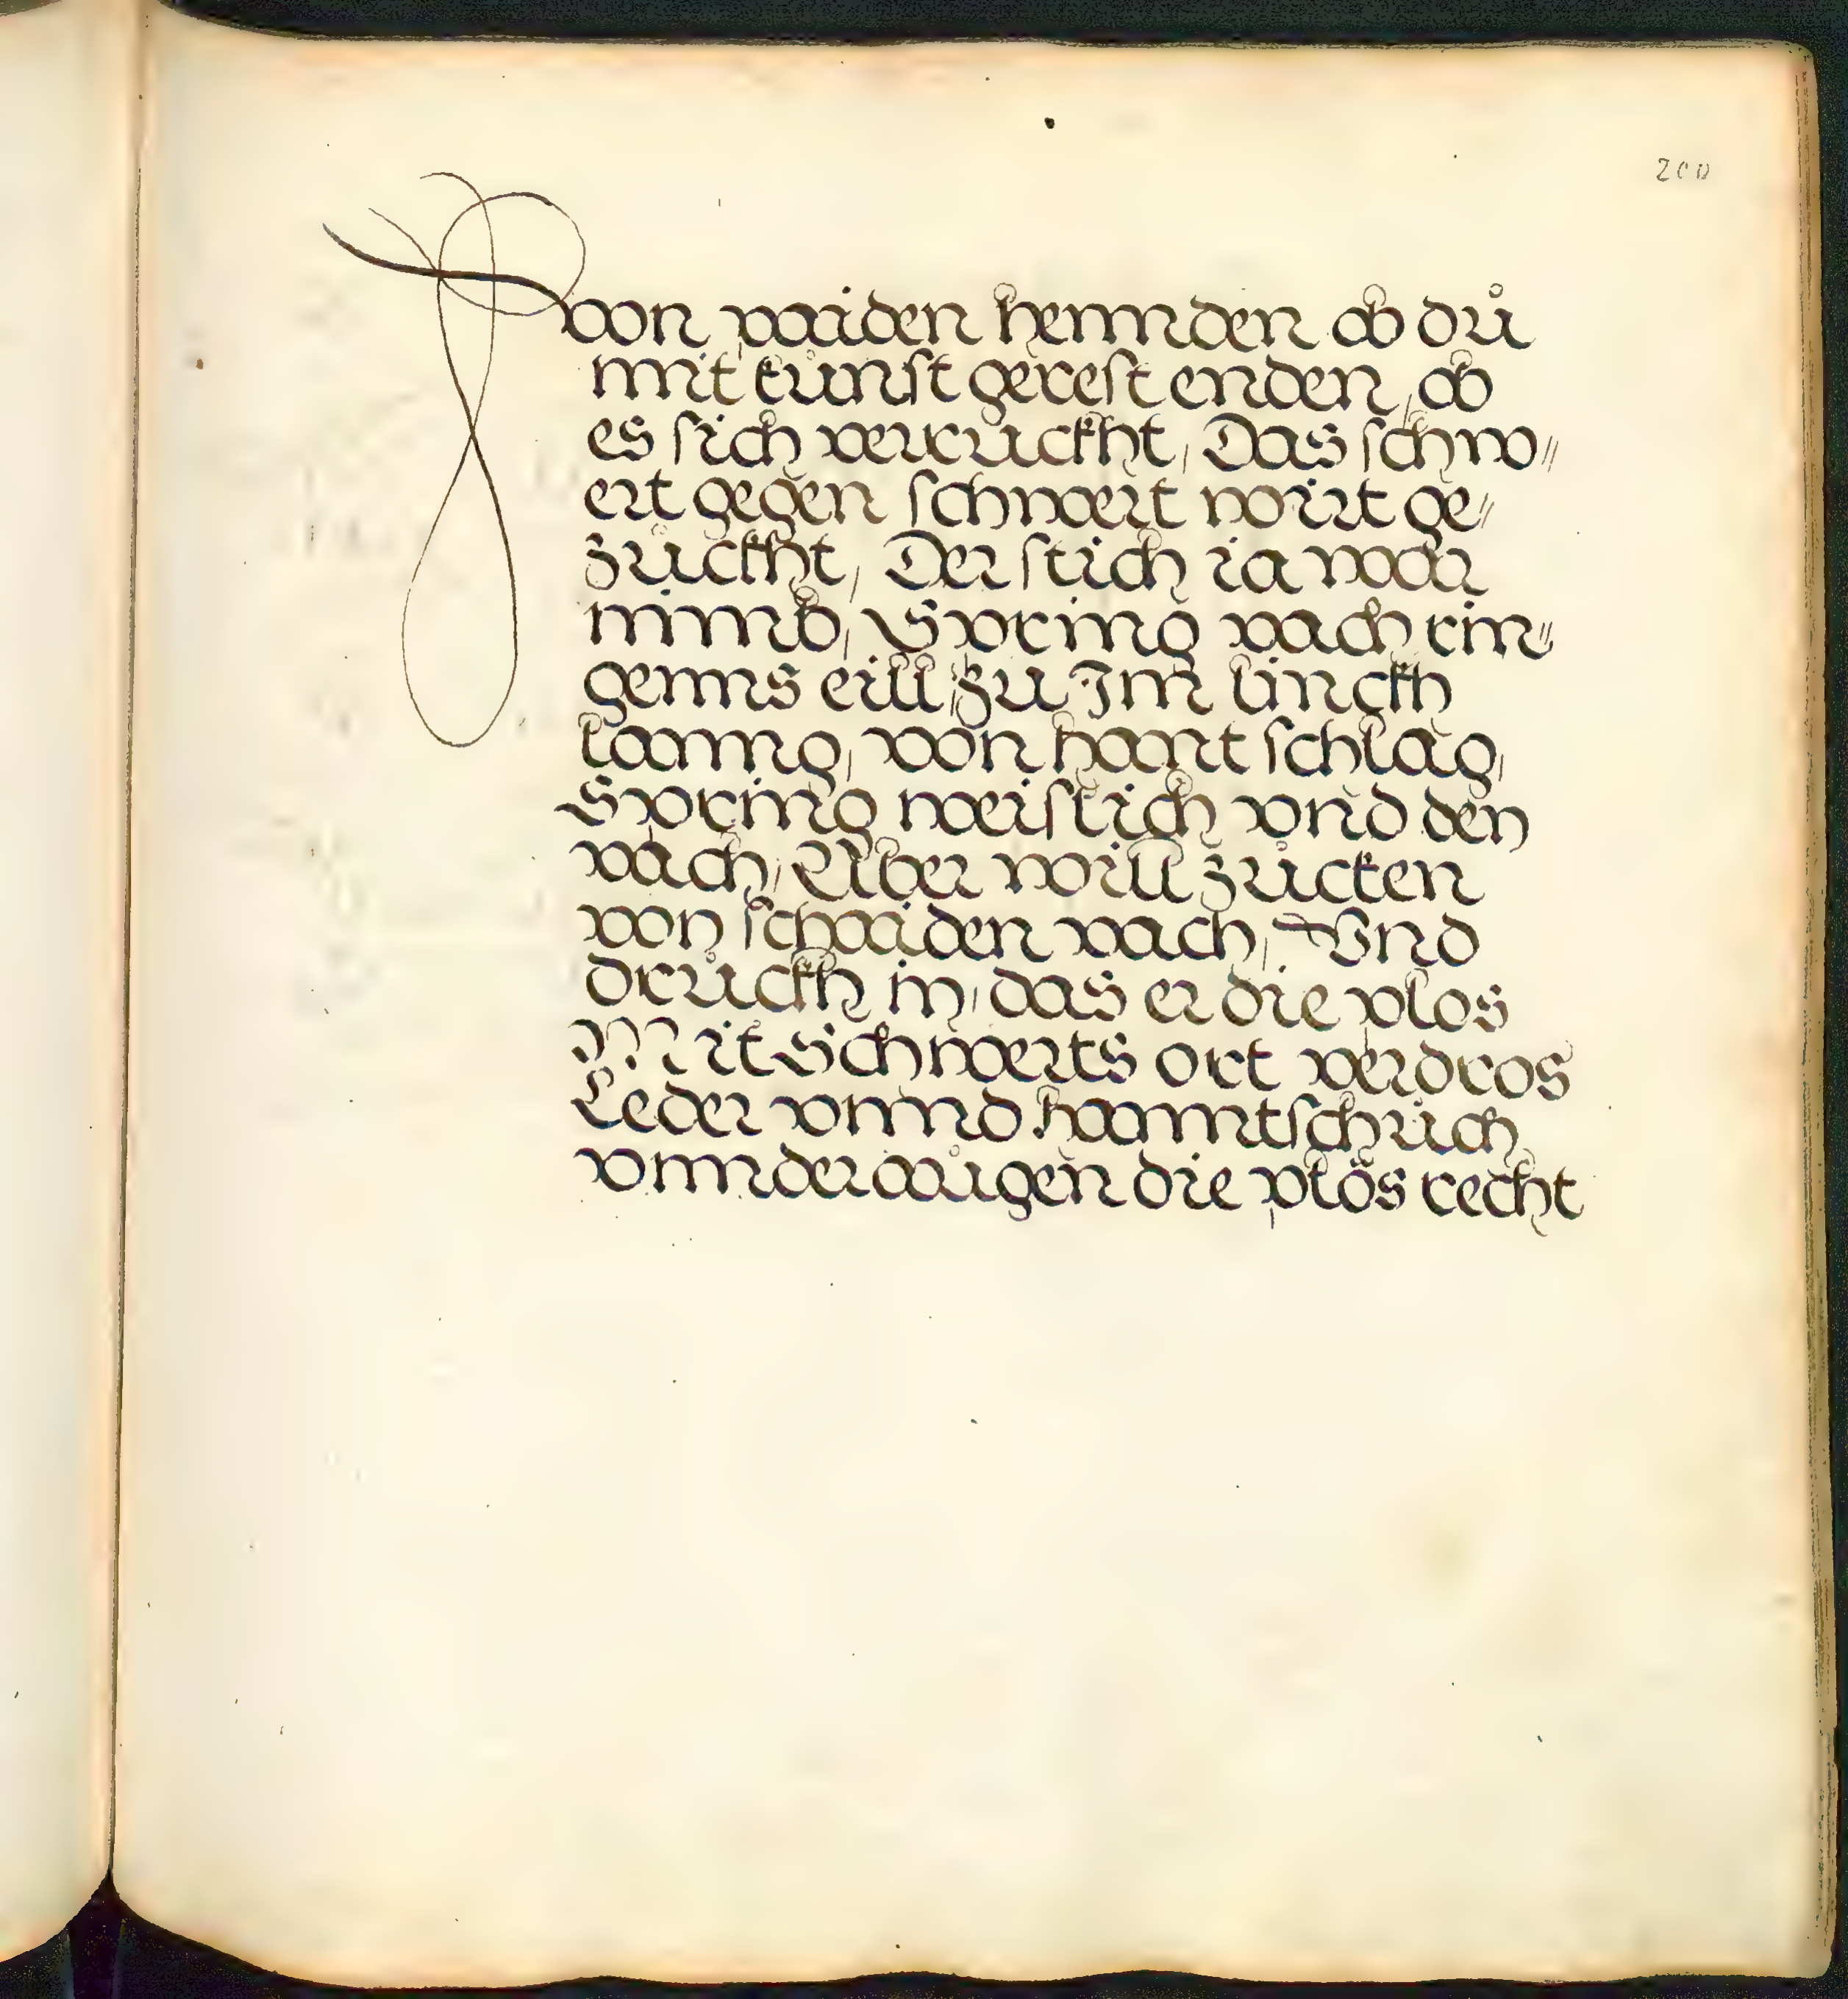 200
von paiden hennden ob dů
mit kunst gerest enden, ob
es sich verruckht, Das schw//
ert gegen schwert wirt ge//
zůckht, Der stich ia war
nimb, Spring nach rin//
genns eill zu Im linckh
lanng, von hant schlag,
Spring weislich vnd den
nach, Aber will zůcken
von schaiden nach, Vnd
druckh in, das er die plos
Mit Schwerts ort verdros
Leder vnnd hanntschůch
vnnder augen die plös recht